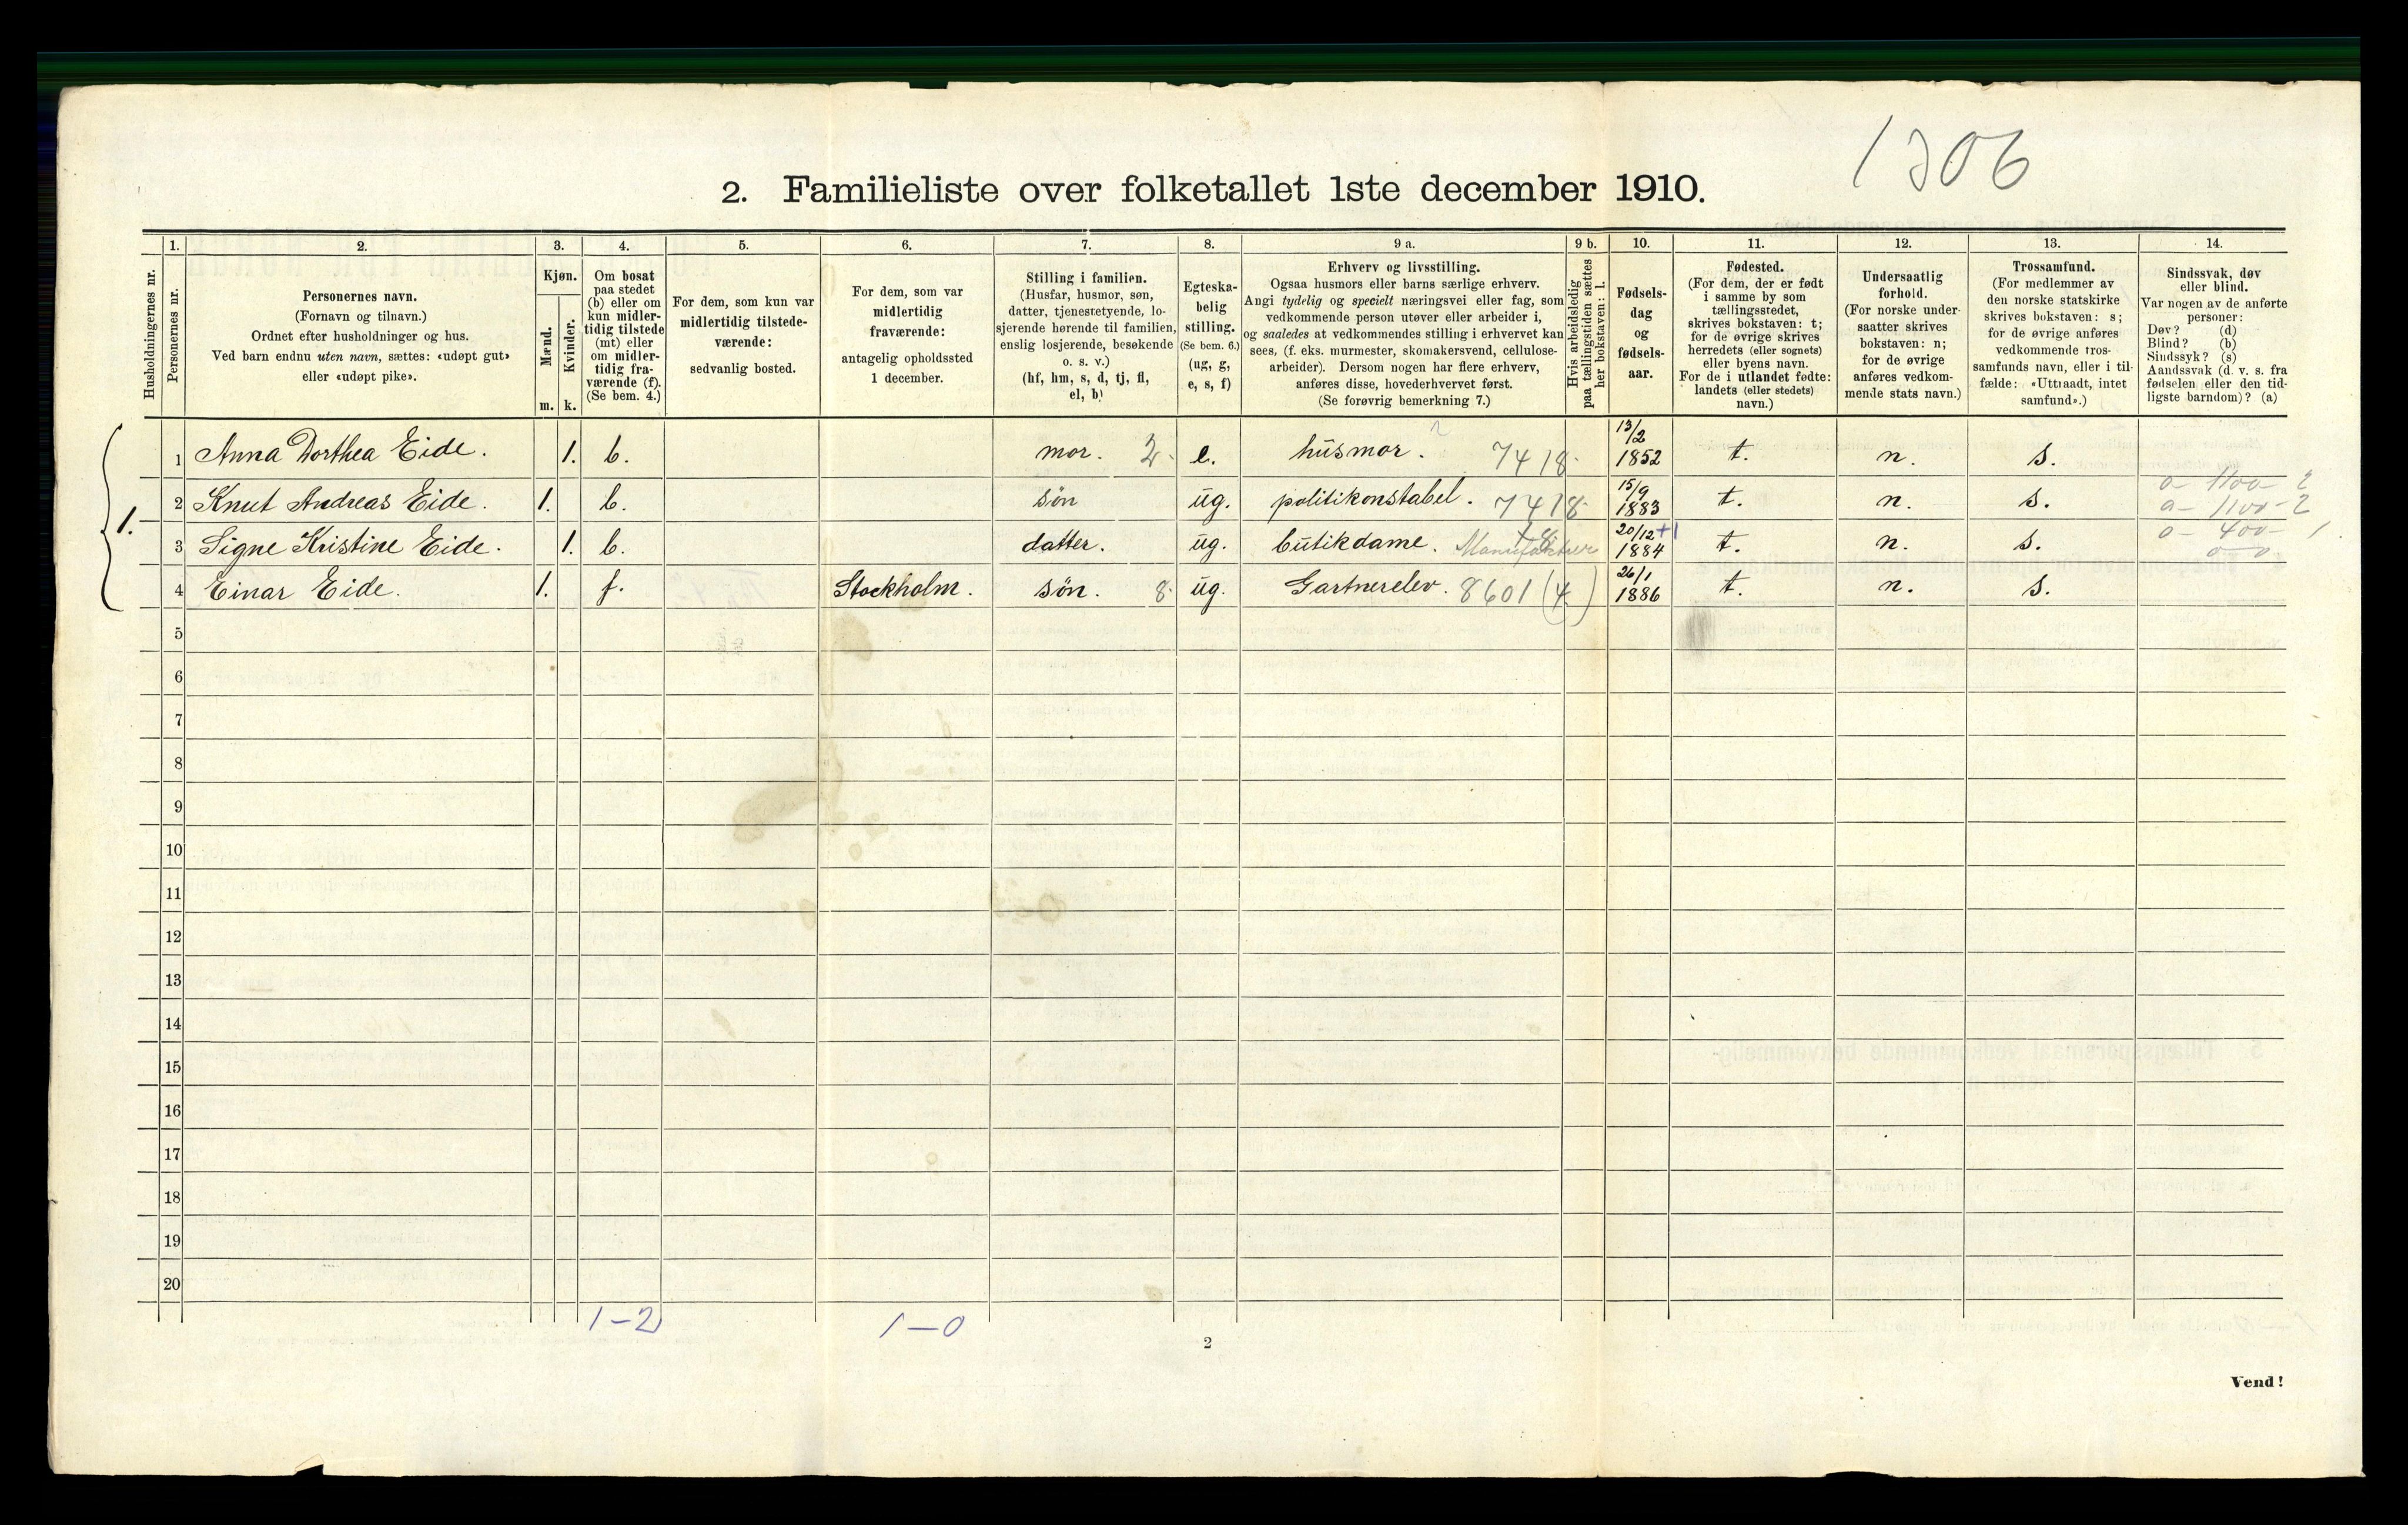 1306
2. Familieliste over folketallet 1ste december 1910.
Husholdningernes nr.
1.
Personernes nr.
2.
Personernes navn.
(Fornavn og tilnavn.)
Ordnet efter husholdninger og hus.
Ved barn endnu uten navn, sættes: «udøpt gut»
eller «udøpt pike».
3.
Kjøn.
Mænd.
Kvinder.
m. k.
4.
Om bosat
paa stedet
(b) eller om
kun midler-
tidig tilstede
(mt) eller
om midler-
tidig fra-
værende (f).
(Se bem. 4.)
5.
For dem, som kun var
midlertidig tilstede-
værende:
sedvanlig bosted.
6.
For dem, som var
midlertidig
fraværende:
antagelig opholdssted
1 december.
7.
Stilling i familien.
(Husfar, husmor, søn,
datter, tjenestetyende, lo-
sjerende hørende til familien,
enslig losjerende, besøkende
o. s. v.)
(hf, hm, s, d, tj, fl,
el, b)
8.
Egteska-
belig
stilling.
(Se bem. 6.)
(ug, g,
e, s, f)
9 a.
Erhverv og livsstilling.
Ogsaa husmors eller barns særlige erhverv.
Angi tydelig og specielt næringsvei eller fag, som
vedkommende person utøver eller arbeider i,
og saaledes at vedkommendes stilling i erhvervet kan
sees, (f. eks. murmester, skomakersvend, cellulose-
arbeider). Dersom nogen har flere erhverv,
anføres disse, hovederhvervet først.
(Se forøvrig bemerkning 7.)
9 b.
Hvis arbeidsledig
paa tællingstiden sættes
her bokstaven: l.
10.
Fødsels-
dag
og
fødsels-
aar.
11.
Fødested.
(For dem, der er født
i samme by som
tællingsstedet,
skrives bokstaven: t;
for de øvrige skrives
herredets (eller sognets)
eller byens navn.
For de i utlandet fødte:
landets (eller stedets)
navn.)
12.
Undersaatlig
forhold.
(For norske under-
saatter skrives
bokstaven: n;
for de øvrige
anføres vedkom-
mende stats navn.)
13.
Trossamfund.
(For medlemmer av
den norske statskirke
skrives bokstaven: s;
for de øvrige anføres
vedkommende tros-
samfunds navn, eller i til-
fælde: «Uttraadt, intet
samfund».)
14.
Sindssvak, døv
eller blind.
Var nogen av de anførte
personer:
Døv? (d)
Blind? (b)
Sindssyk? (s)
Aandssvak (d. v. s. fra
fødselen eller den tid-
ligste barndom)? (a)
1.
1 Anna Dorthea Eide. 1. b. mor. 2. e. husmor. 7418 13/2 1852 t. n. s.
a- 1100- 2
2 Knut Andreas Eide. 1. b. søn ug. politikonstabel. 7418 15/9 1883 t. n. s. a- 1100-2
3 Signe Kristine Eide. 1. b. datter. ug. butikdame. Manufaktur 20/12 1884 t. n. s. 0- 400- 1
0 0
4 Einar Eide. 1. f. Stockholm. søn. 8. ug. Gartnerelev. 8601 (4.) 26/1 1886 t. n. s.
5
6
7
8
9
10
11
12
13
14
15
16
17
18
19
20
1-2 1-0
2
Vend!